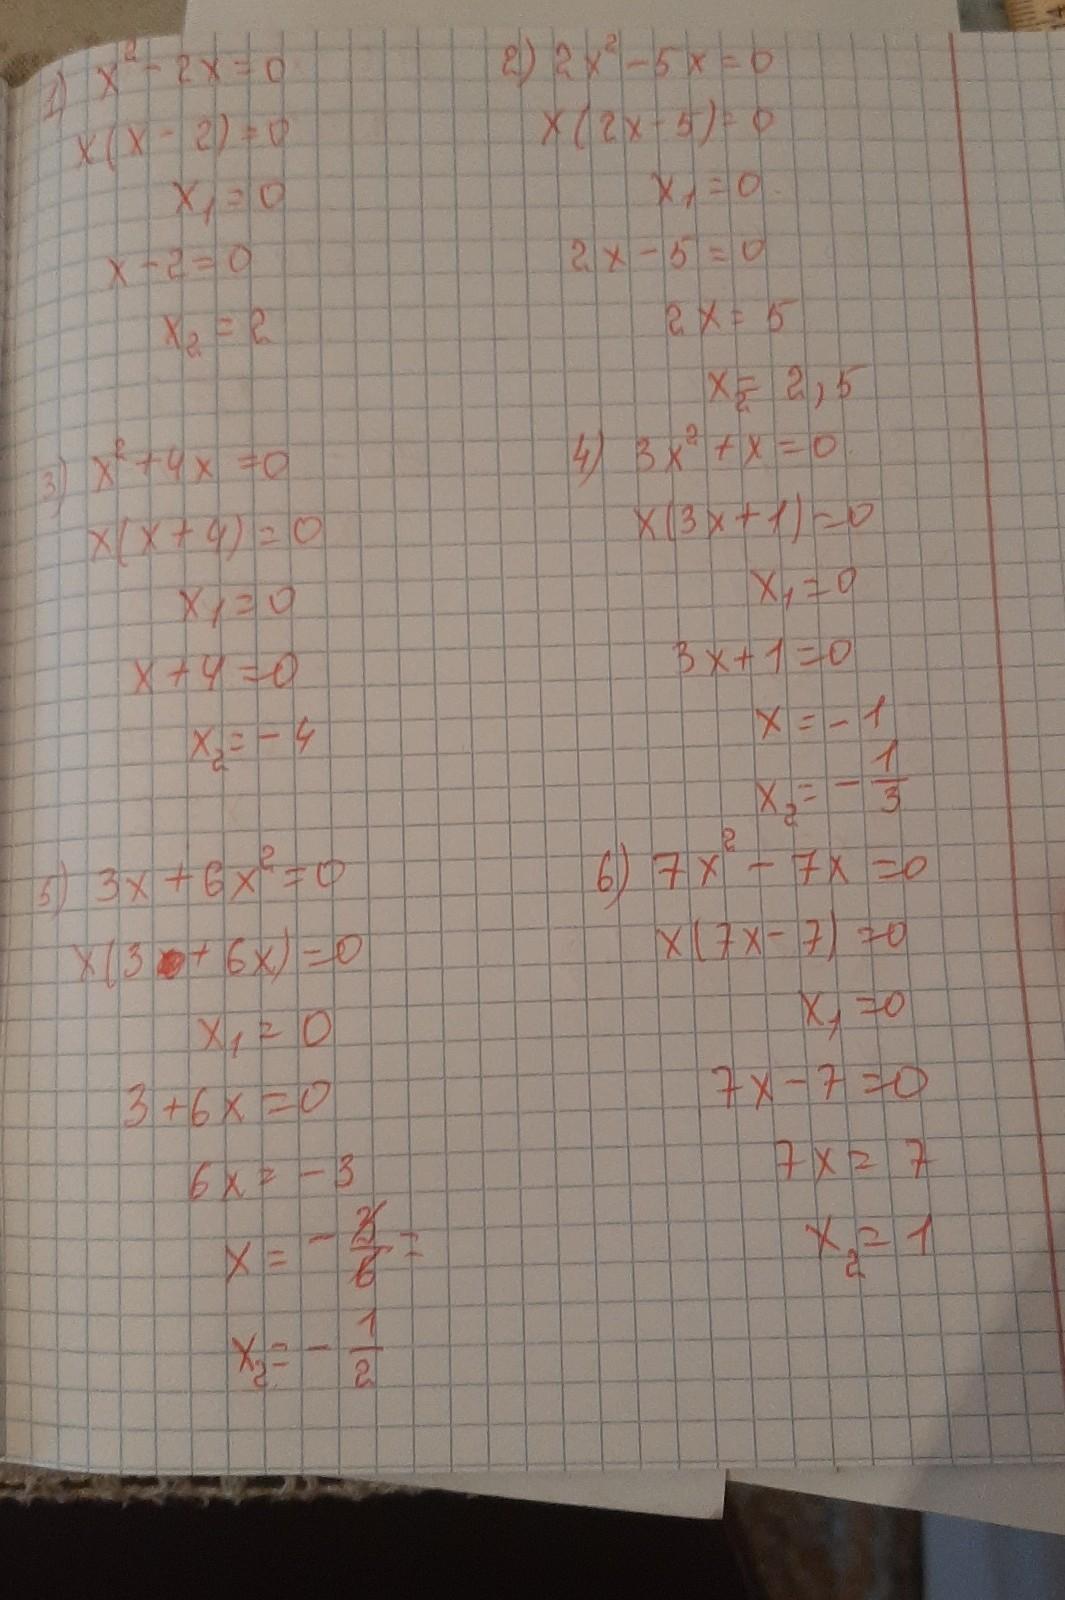 1) x² - 2x = 0
x(x - 2) = 0
x₁ = 0
x - 2 = 0
x₂ = 2
2) 2x² - 5x = 0
x(2x - 5) = 0
x₁ = 0
2x - 5 = 0
2x = 5
x₂ = 2,5
3) x² + 4x = 0
x(x + 4) = 0
x₁ = 0
x + 4 = 0
x₂ = -4
4) 3x² + x = 0
x(3x + 1) = 0
x₁ = 0
3x + 1 = 0
x = -1
x₂ = -1/3
5) 3x + 6x² = 0
x(3 + 6x) = 0
x₁ = 0
3 + 6x = 0
6x = -3
x = -3/6 =
x₂ = -1/2
6) 7x² - 7x = 0
x(7x - 7) = 0
x₁ = 0
7x - 7 = 0
7x = 7
x₂ = 1